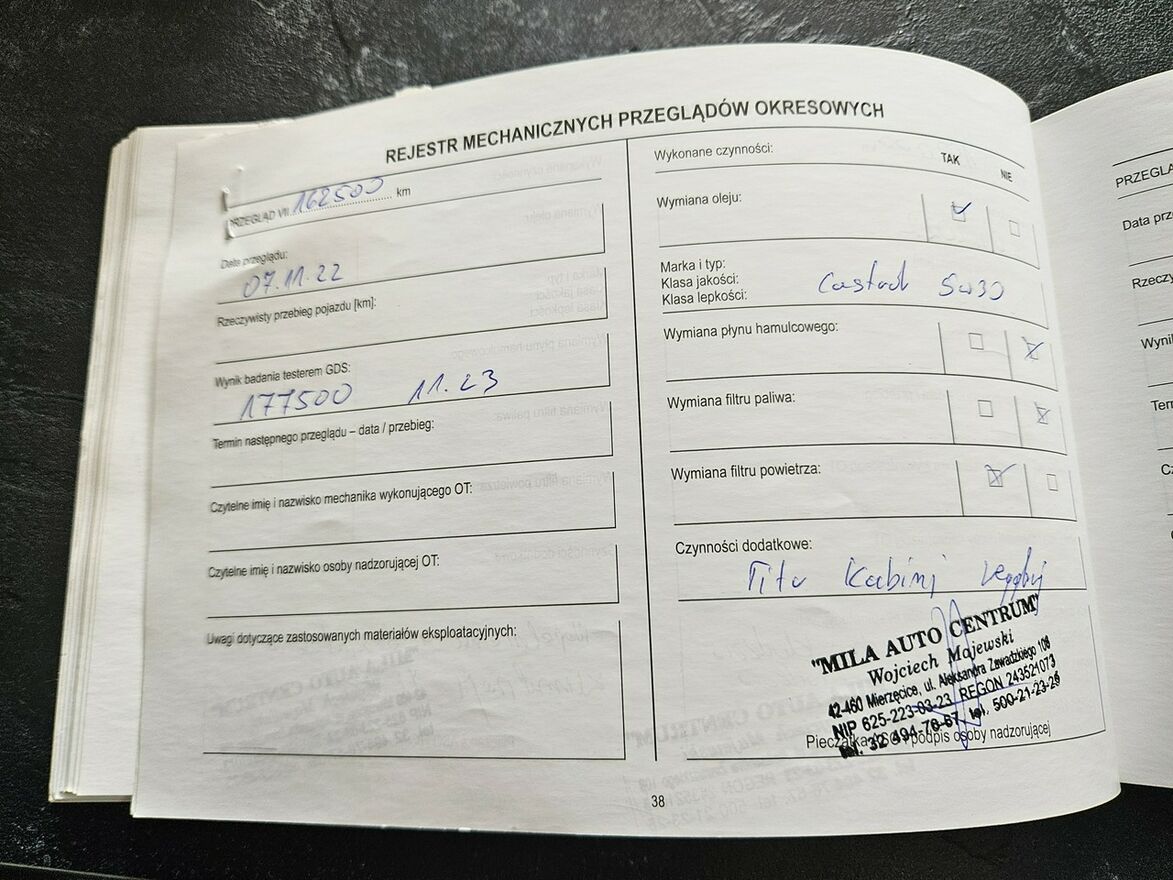 REJESTR MECHANICZNYCH PRZEGLĄDÓW OKRESOWYCH
PRZEGLĄD VII 162500 km
Data przeglądu:
07.11.22
Rzeczywisty przebieg pojazdu [km]:
Wynik badania testerem GDS:
177500 11.23
Termin następnego przeglądu – data / przebieg:
Czytelne imię i nazwisko mechanika wykonującego OT:
Czytelne imię i nazwisko osoby nadzorującej OT:
Uwagi dotyczące zastosowanych materiałów eksploatacyjnych:
Wykonane czynności: TAK NIE
Wymiana oleju:
Marka i typ:
Klasa jakości:
Klasa lepkości:
Castrol 5w30
Wymiana płynu hamulcowego:
Wymiana filtru paliwa:
Wymiana filtru powietrza:
Czynności dodatkowe:
Kabiny
"MILA AUTO CENTRUM"
Wojciech Majewski
42-460 Mierzęcice, ul. Aleksandra Zawadzkiego 108
NIP 625-223-03-23 REGON 243521073
tel. 32 494-78-67 tel. 500-21-23-26
Pieczątka podpis osoby nadzorującej
38
PRZEGLĄ
Data prz
Rzeczy
Wynil
Tern